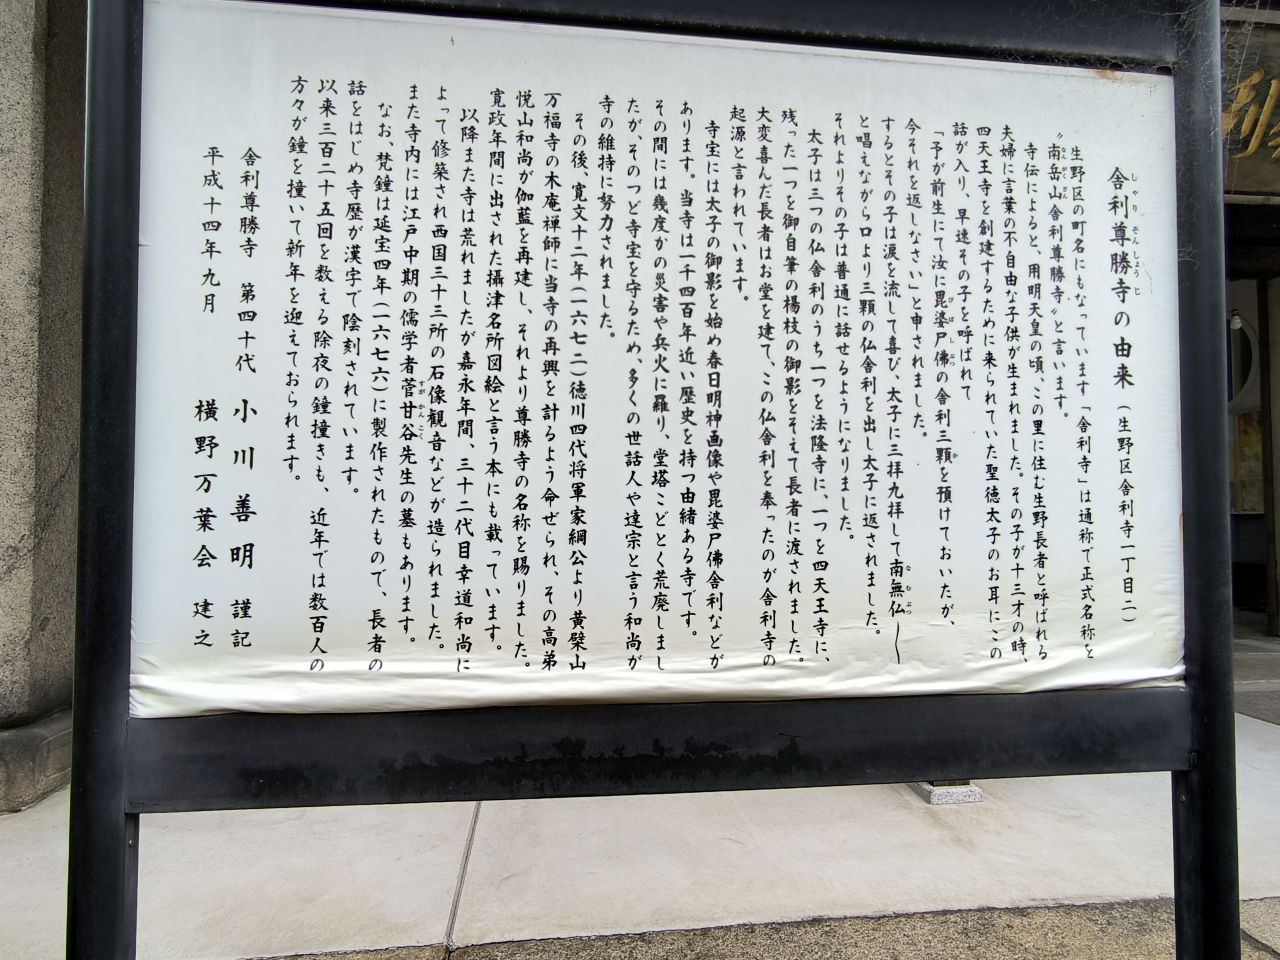 舎利尊勝寺の由来（生野区舎利寺一丁目二）
しゃり そんしょうじ
生野区の町名にもなっています「舎利寺」は通称で正式名称を
〝南岳山舎利尊勝寺〟と言います。
なんがくざん
寺伝によると、用明天皇の頃、この里に住む生野長者と呼ばれる
夫婦に言葉の不自由な子供が生まれました。その子が十三才の時、
四天王寺を創建するために来られていた聖徳太子のお耳にこの
話が入り、早速その子を呼ばれて
「予が前生にて汝に毘婆尸佛の舎利三顆を預けておいたが、
びばしぶつ か
今それを返しなさい」と申されました。
するとその子は涙を流して喜び、太子に三拝九拝して南無仏――
なむぶつ
と唱えながら口より三顆の仏舎利を出し太子に返されました。
それよりその子は普通に話せるようになりました。
太子は三つの仏舎利のうち一つを法隆寺に、一つを四天王寺に、
残った一つを御自筆の楊枝の御影をそえて長者に渡されました。
大変喜んだ長者はお堂を建て、この仏舎利を奉ったのが舎利寺の
起源と言われています。
寺宝には太子の御影を始め春日明神画像や毘婆尸佛舎利などが
あります。当寺は一千四百年近い歴史を持つ由緒ある寺です。
その間には幾度かの災害や兵火に羅り、堂塔ことごとく荒廃しまし
たが、そのつど寺宝を守るため、多くの世話人や達宗と言う和尚が
寺の維持に努力されました。
その後、寛文十二年（一六七二）徳川四代将軍家綱公より黄檗山
万福寺の木庵禅師に当寺の再興を計るよう命ぜられ、その高弟
悦山和尚が伽藍を再建し、それより尊勝寺の名称を賜りました。
寛政年間に出された攝津名所図絵と言う本にも載っています。
以降また寺は荒れましたが嘉永年間、三十二代目幸道和尚に
よって修築され西国三十三所の石像観音などが造られました。
また寺内には江戸中期の儒学者菅甘谷先生の墓もあります。
すが かんこく
なお、梵鐘は延宝四年（一六七六）に製作されたもので、長者の
話をはじめ寺歴が漢字で陰刻されています。
以来三百二十五回を数える除夜の鐘撞きも、近年では数百人の
方々が鐘を撞いて新年を迎えておられます。
舎利尊勝寺 第四十代 小川善明 謹記
平成十四年九月 横野万葉会 建之